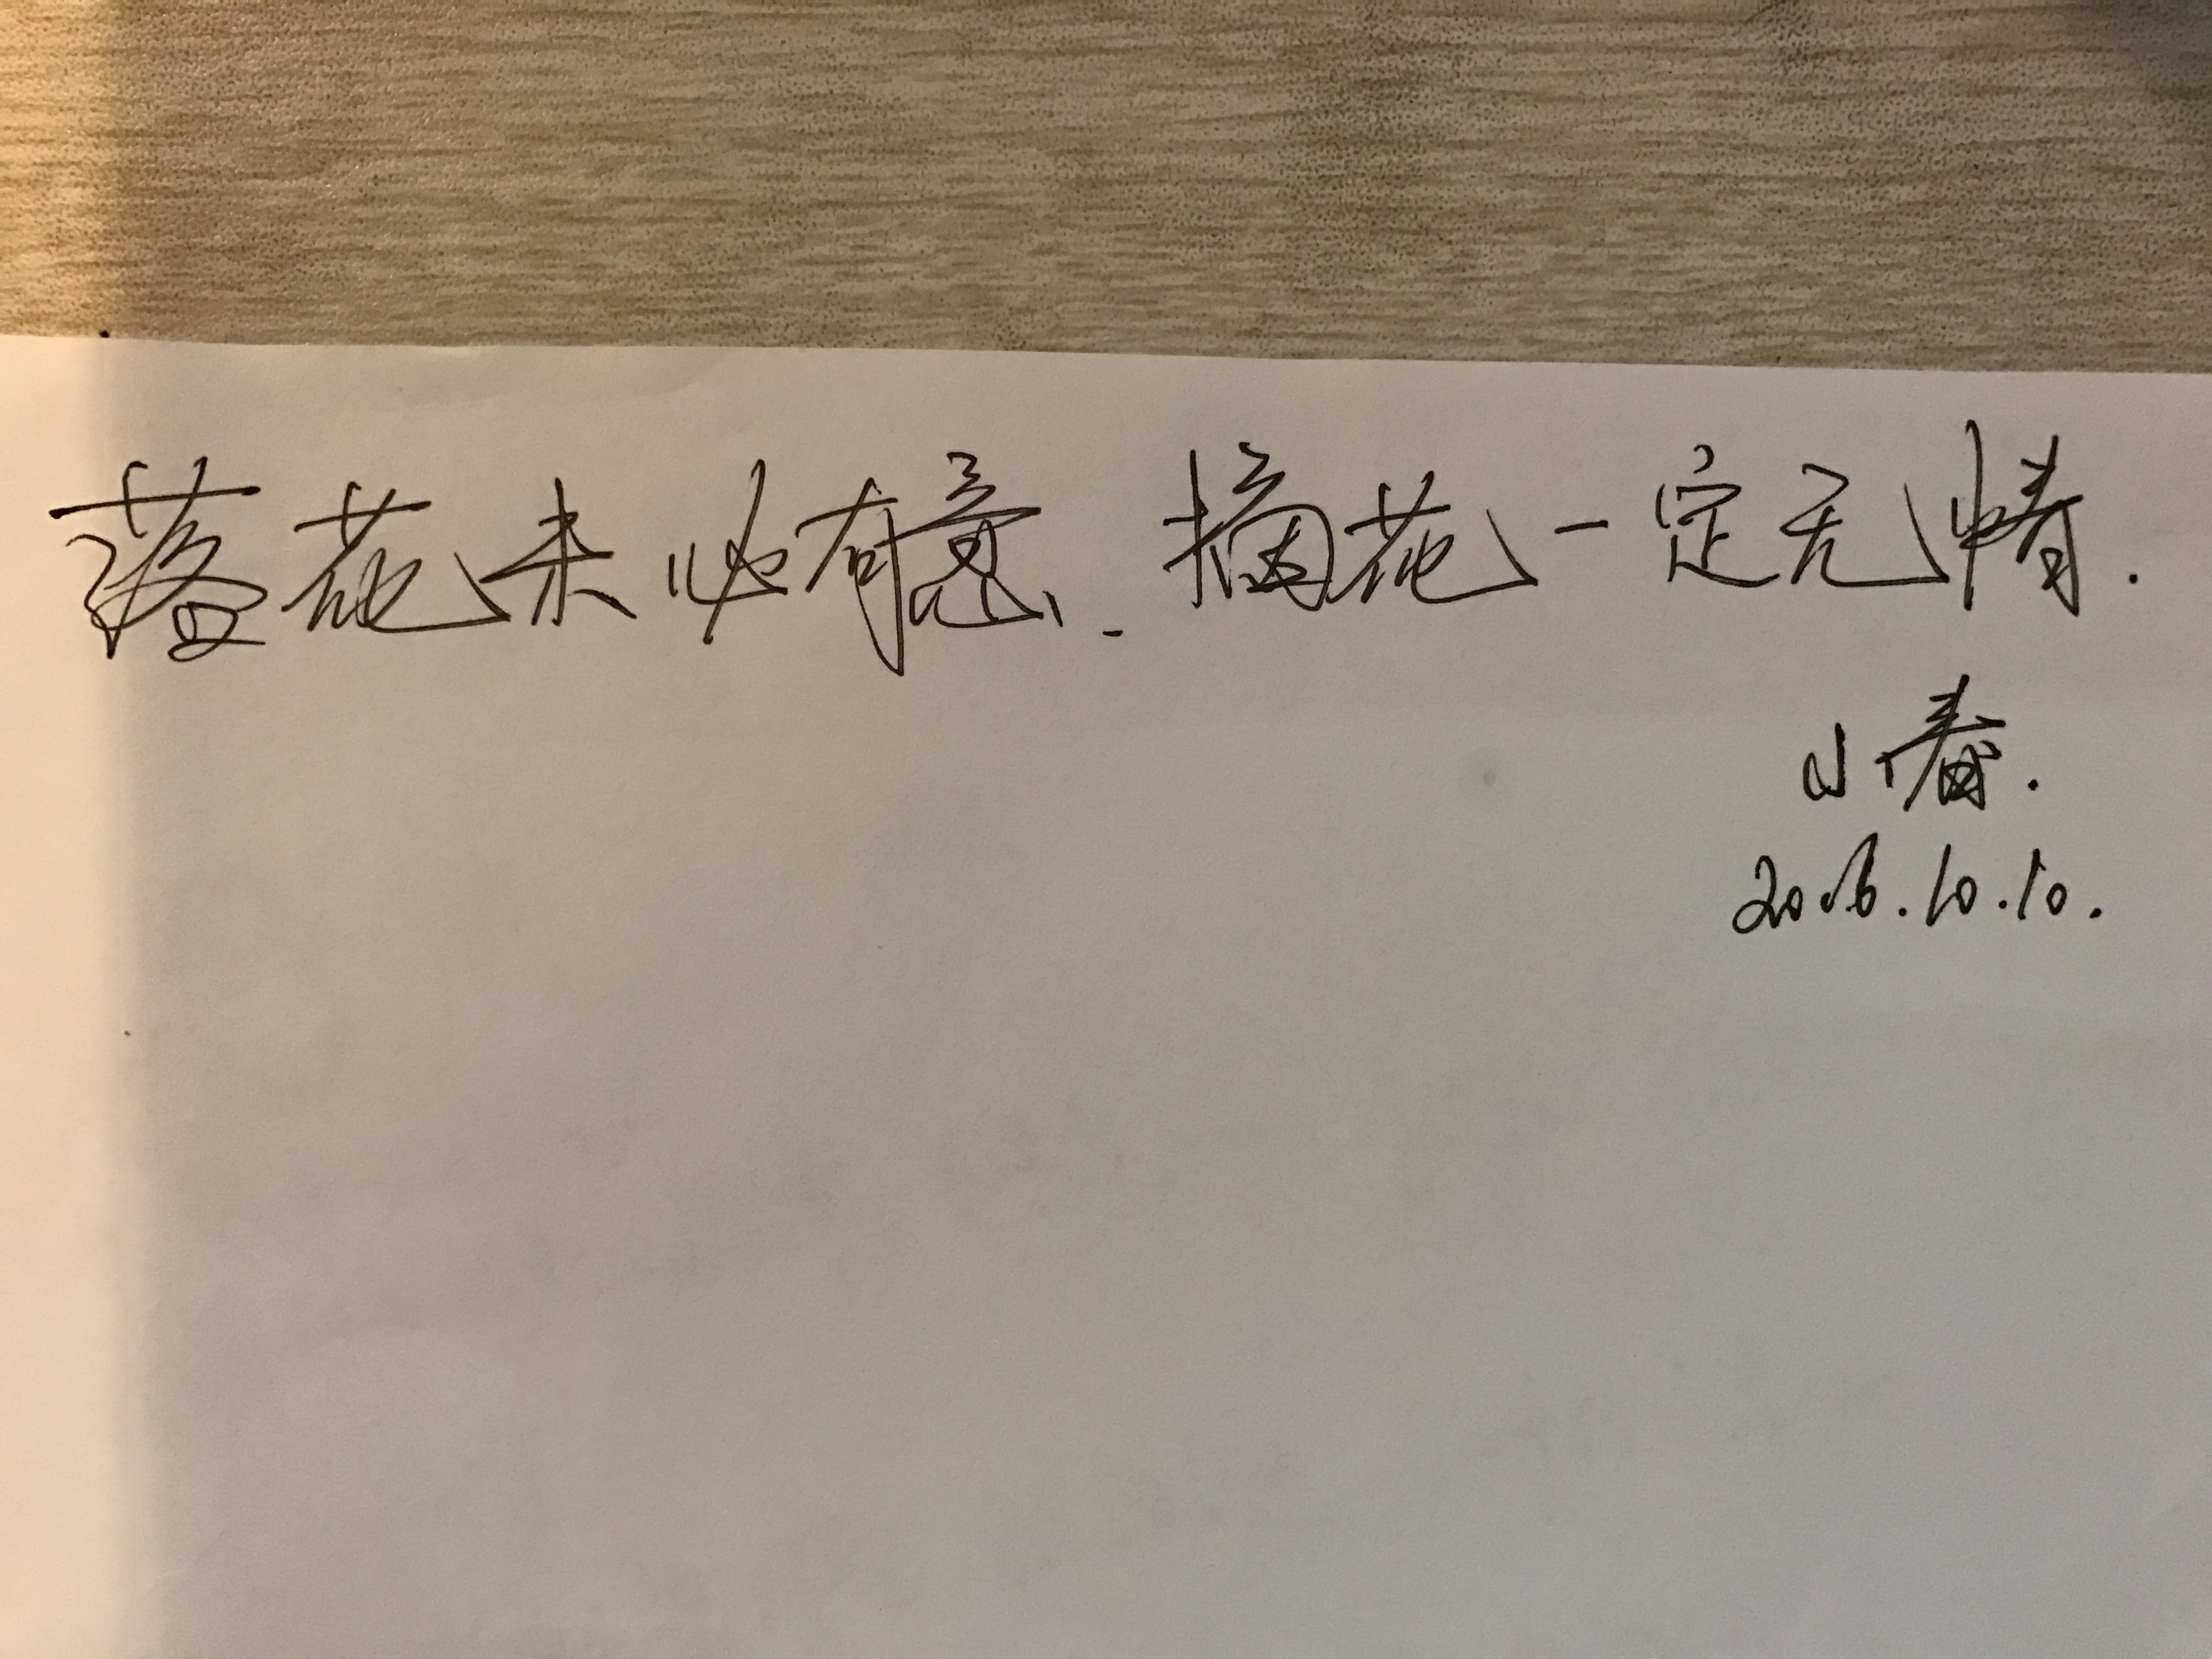 落花未必有意.摘花一定无情.
小春.
2016.10.10.